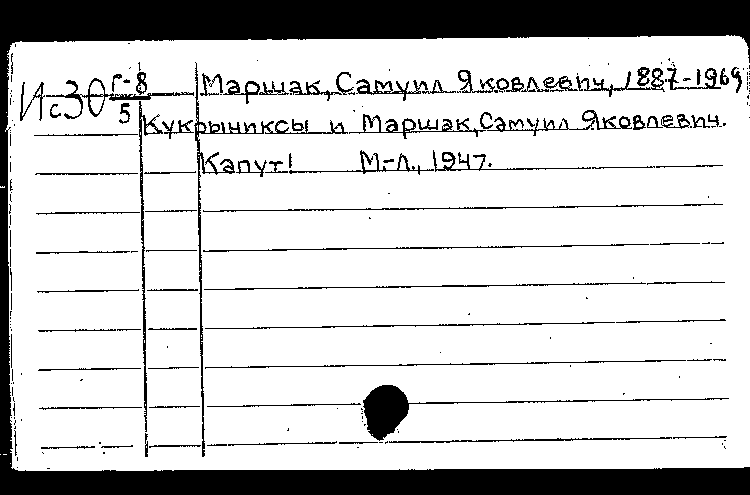 Ис30 г-8/5 Маршак, Самуил Яковлевич, 1887-1969
Кукрыниксы и Маршак, Самуил Яковлевич.
Капут! М.-Л., 1947.